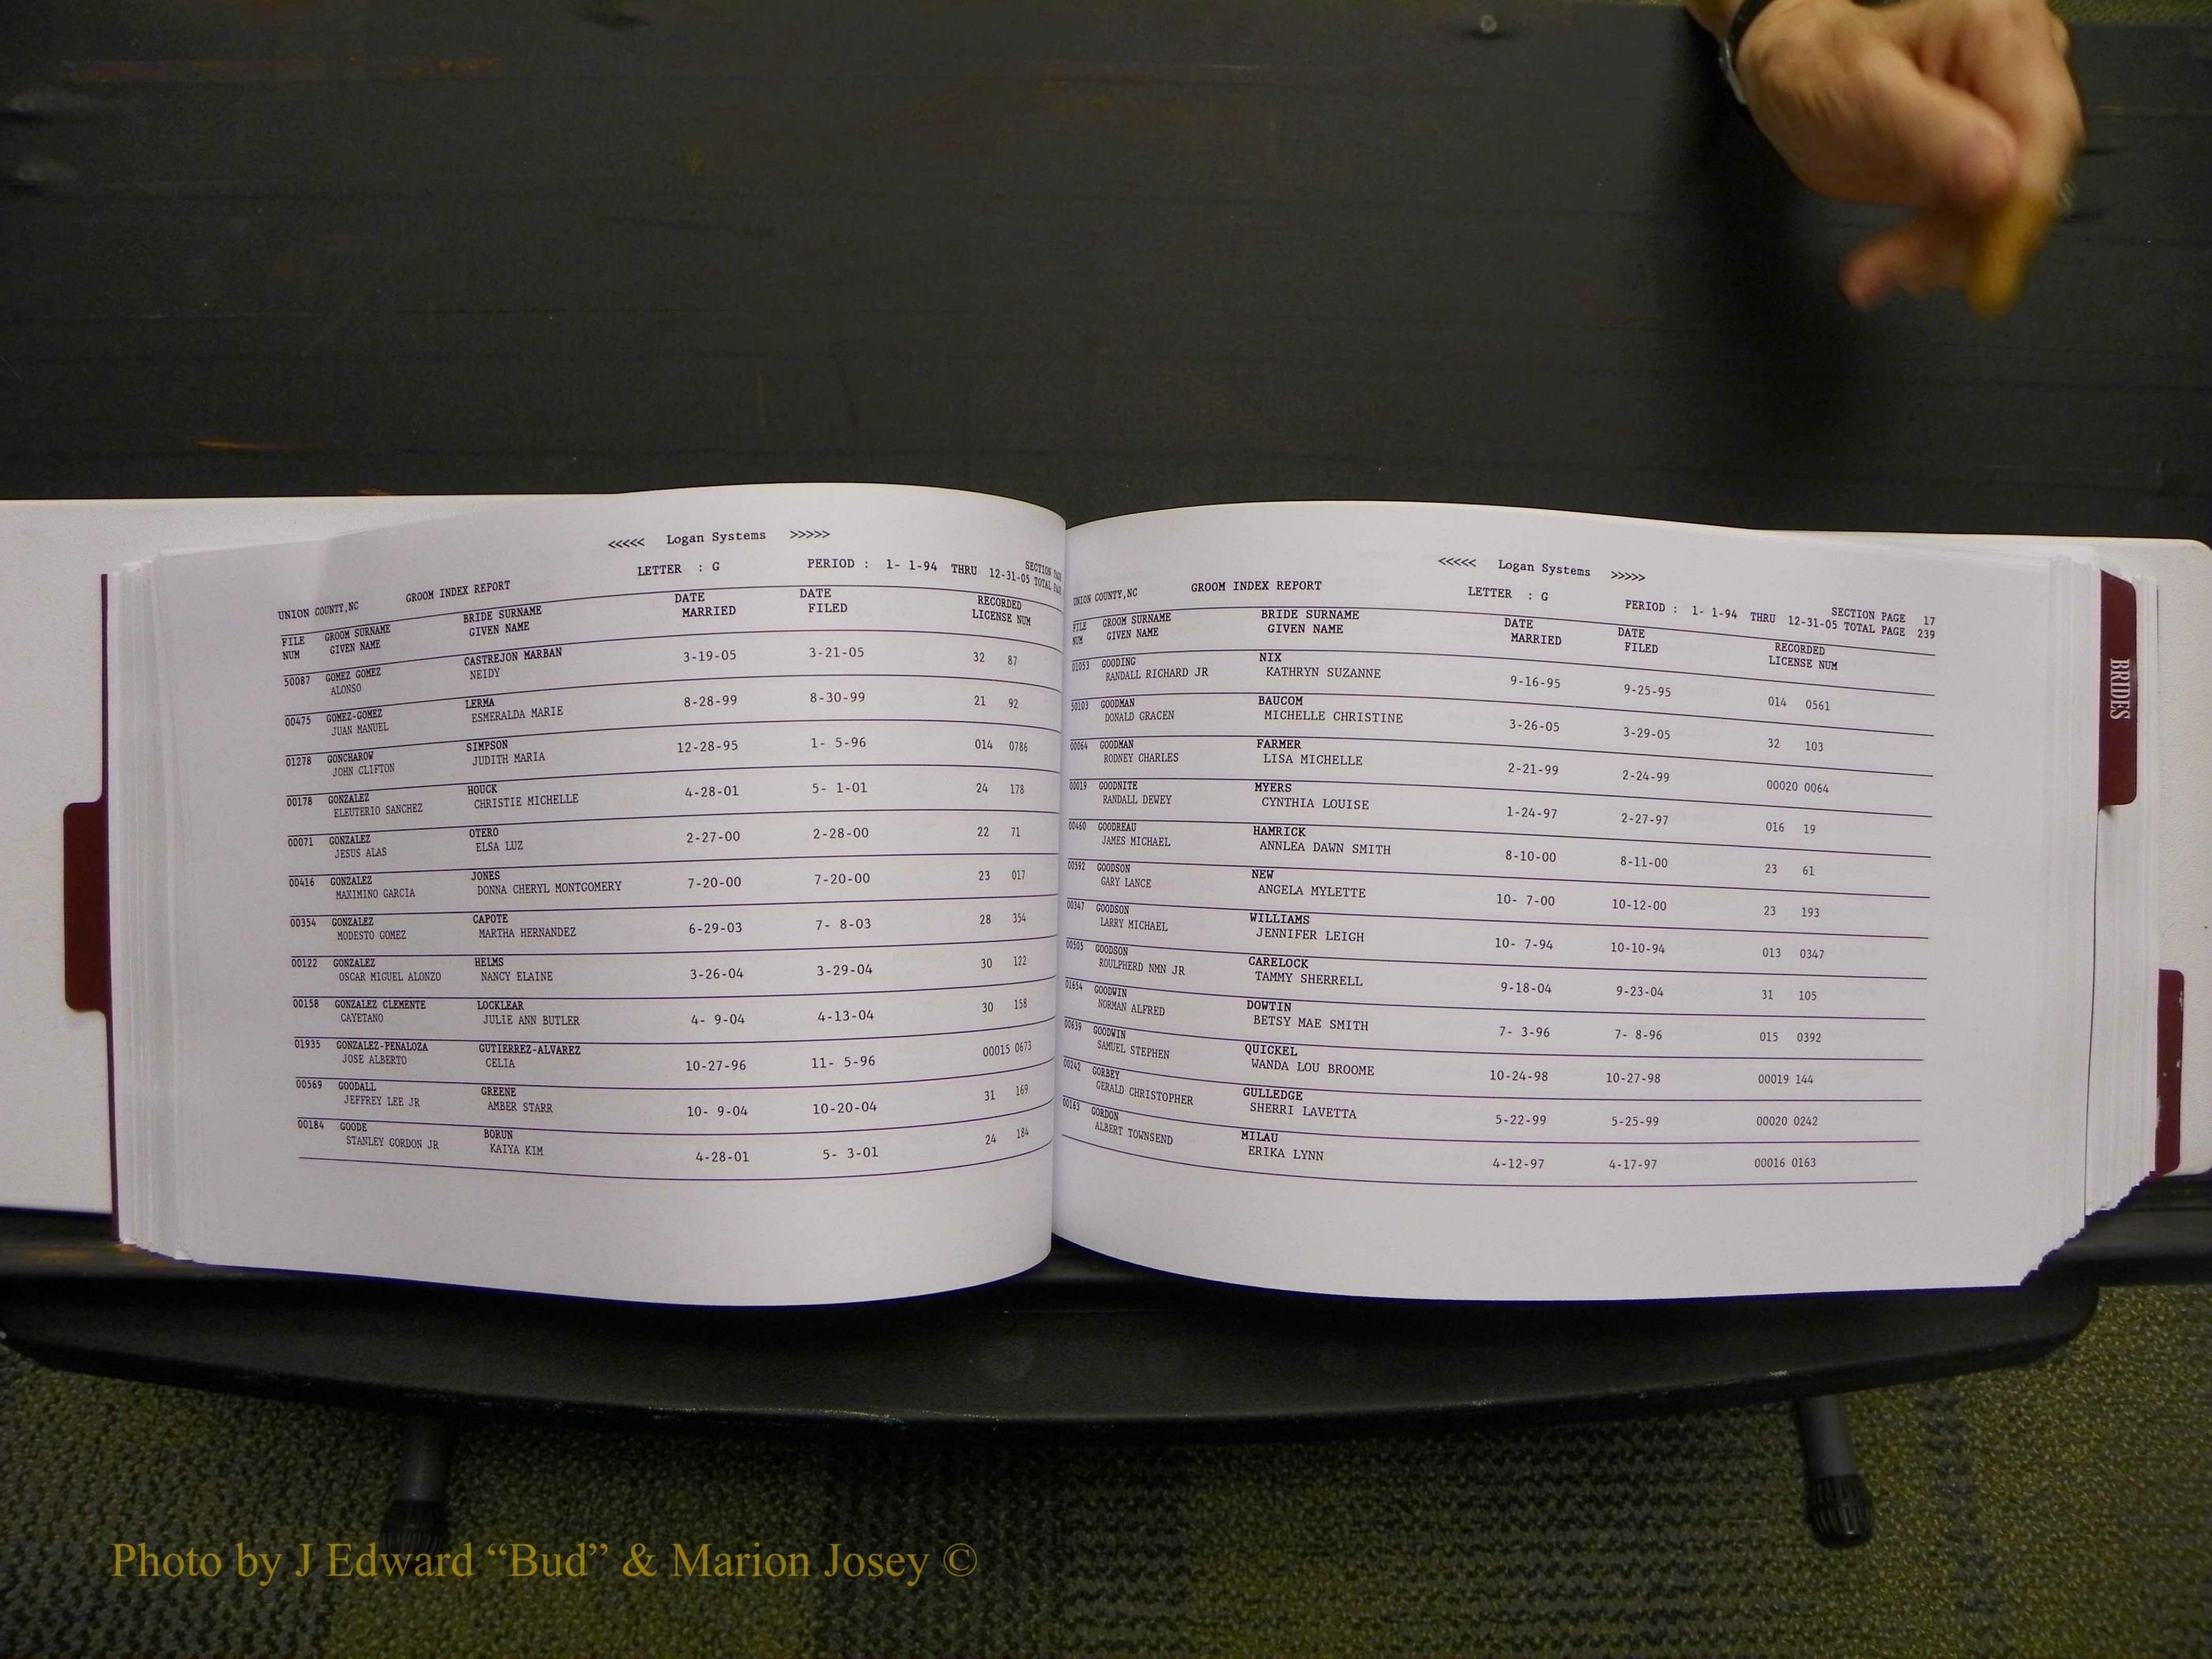 <<<<< Logan Systems >>>>>
UNION COUNTY,NC GROOM INDEX REPORT LETTER : G PERIOD : 1- 1-94 THRU 12-31-05 SECTION TOTAL
FILE GROOM SURNAME BRIDE SURNAME DATE DATE RECORDED
NUM GIVEN NAME GIVEN NAME MARRIED FILED LICENSE NUM
50087 GOMEZ GOMEZ CASTREJON MARBAN 3-19-05 3-21-05 32 87
ALONSO NEIDY
00475 GOMEZ-GOMEZ LERMA 8-28-99 8-30-99 21 92
JUAN MANUEL ESMERALDA MARIE
01278 GONCHAROW SIMPSON 12-28-95 1- 5-96 014 0786
JOHN CLIFTON JUDITH MARIA
00178 GONZALEZ HOUCK 4-28-01 5- 1-01 24 178
ELEUTERIO SANCHEZ CHRISTIE MICHELLE
00071 GONZALEZ OTERO 2-27-00 2-28-00 22 71
JESUS ALAS ELSA LUZ
00416 GONZALEZ JONES 7-20-00 7-20-00 23 017
MAXIMINO GARCIA DONNA CHERYL MONTGOMERY
00354 GONZALEZ CAPOTE 6-29-03 7- 8-03 28 354
MODESTO GOMEZ MARTHA HERNANDEZ
00122 GONZALEZ HELMS 3-26-04 3-29-04 30 122
OSCAR MIGUEL ALONZO NANCY ELAINE
00158 GONZALEZ CLEMENTE LOCKLEAR 4- 9-04 4-13-04 30 158
CAYETANO JULIE ANN BUTLER
01935 GONZALEZ-PENALOZA GUTIERREZ-ALVAREZ 10-27-96 11- 5-96 00015 0673
JOSE ALBERTO CELIA
00569 GOODALL GREENE 10- 9-04 10-20-04 31 169
JEFFREY LEE JR AMBER STARR
00184 GOODE BORUN 4-28-01 5- 3-01 24 184
STANLEY GORDON JR KAIYA KIM
<<<<< Logan Systems >>>>>
UNION COUNTY,NC GROOM INDEX REPORT LETTER : G PERIOD : 1- 1-94 THRU 12-31-05 SECTION PAGE 17
TOTAL PAGE 239
FILE GROOM SURNAME BRIDE SURNAME DATE DATE RECORDED
NUM GIVEN NAME GIVEN NAME MARRIED FILED LICENSE NUM
01053 GOODING NIX 9-16-95 9-25-95 014 0561
RANDALL RICHARD JR KATHRYN SUZANNE
50103 GOODMAN BAUCOM 3-26-05 3-29-05 32 103
DONALD GRACEN MICHELLE CHRISTINE
00064 GOODMAN FARMER 2-21-99 2-24-99 00020 0064
RODNEY CHARLES LISA MICHELLE
00019 GOODNITE MYERS 1-24-97 2-27-97 016 19
RANDALL DEWEY CYNTHIA LOUISE
00460 GOODREAU HAMRICK 8-10-00 8-11-00 23 61
JAMES MICHAEL ANNLEA DAWN SMITH
00592 GOODSON NEW 10- 7-00 10-12-00 23 193
GARY LANCE ANGELA MYLETTE
00347 GOODSON WILLIAMS 10- 7-94 10-10-94 013 0347
LARRY MICHAEL JENNIFER LEIGH
00505 GOODSON CARELOCK 9-18-04 9-23-04 31 105
ROULPHERD NMN JR TAMMY SHERRELL
01654 GOODWIN DOWTIN 7- 3-96 7- 8-96 015 0392
NORMAN ALFRED BETSY MAE SMITH
00639 GOODWIN QUICKEL 10-24-98 10-27-98 00019 144
SAMUEL STEPHEN WANDA LOU BROOME
00242 GORBEY GULLEDGE 5-22-99 5-25-99 00020 0242
GERALD CHRISTOPHER SHERRI LAVETTA
00163 GORDON MILAU 4-12-97 4-17-97 00016 0163
ALBERT TOWNSEND ERIKA LYNN
BRIDES
Photo by J Edward “Bud” & Marion Josey ©